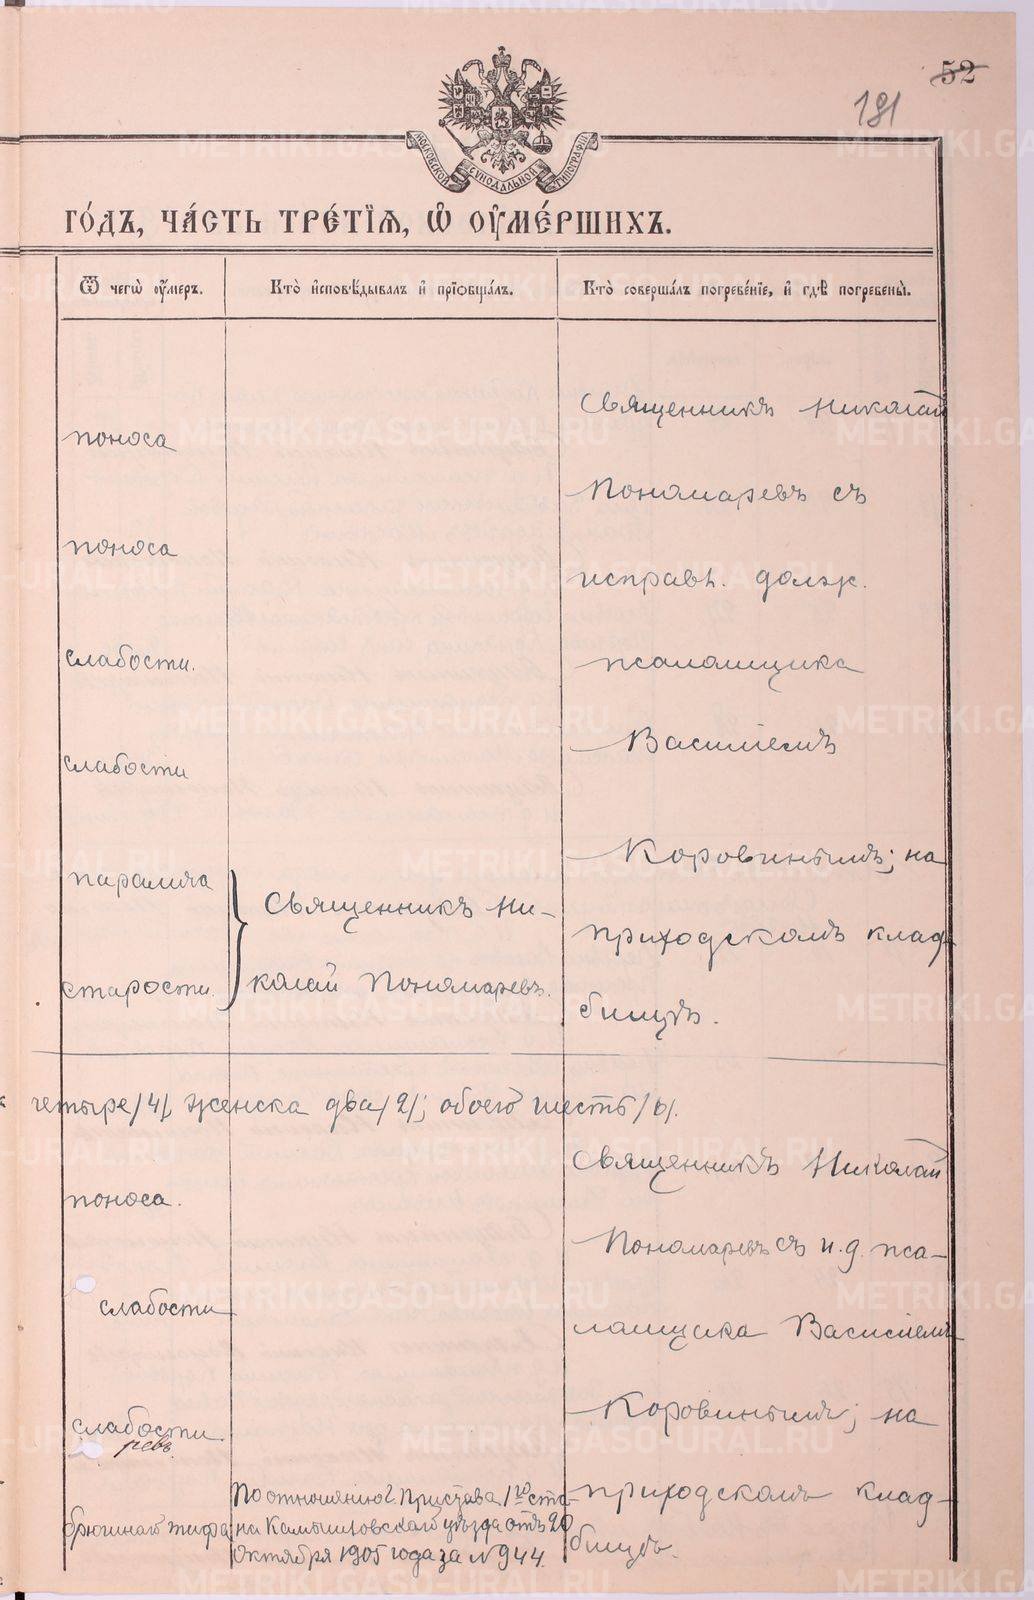 52
191
МОСКОВСКОЙ СѴНОДАЛЬНОЙ ТИПОГРАФІИ
ГО́ДЪ, ЧА́СТЬ ТРЕ́ТІѦ, Ѡ҆ ОУ҆МЕ́РШИХЪ.
Ѿ чегѡ̀ оу҆́меръ.
Кто̀ и҆сповѣ́дывалъ и҆ прїѻбща́лъ.
Кто̀ соверша́лъ погребе́нїе, и҆ гдѣ̀ погребены̀.
поноса
поноса
слабости.
слабости
паралича
старости.
Священникъ Ни-
колай Пономаревъ.
Священникъ Николай
Пономаревъ съ
исправл. долж.
псаломщика
Василіемъ
Коровинымъ; на
приходскомъ клад-
бищѣ.
четыре /4/, женска два /2/; обоего шесть /6/.
поноса.
слабости
слабости.
ревъ.
брюшнаго тифа
По отношенію г. Пристава 1го ста-
на Камышловскаго уѣзда отъ 20
Октября 1905 года за № 944.
Священникъ Николай
Пономаревъ съ и. д. пса-
ломщика Василіемъ
Коровинымъ; на
приходскомъ клад-
бищѣ.
METRIKI.GASO-URAL.RU